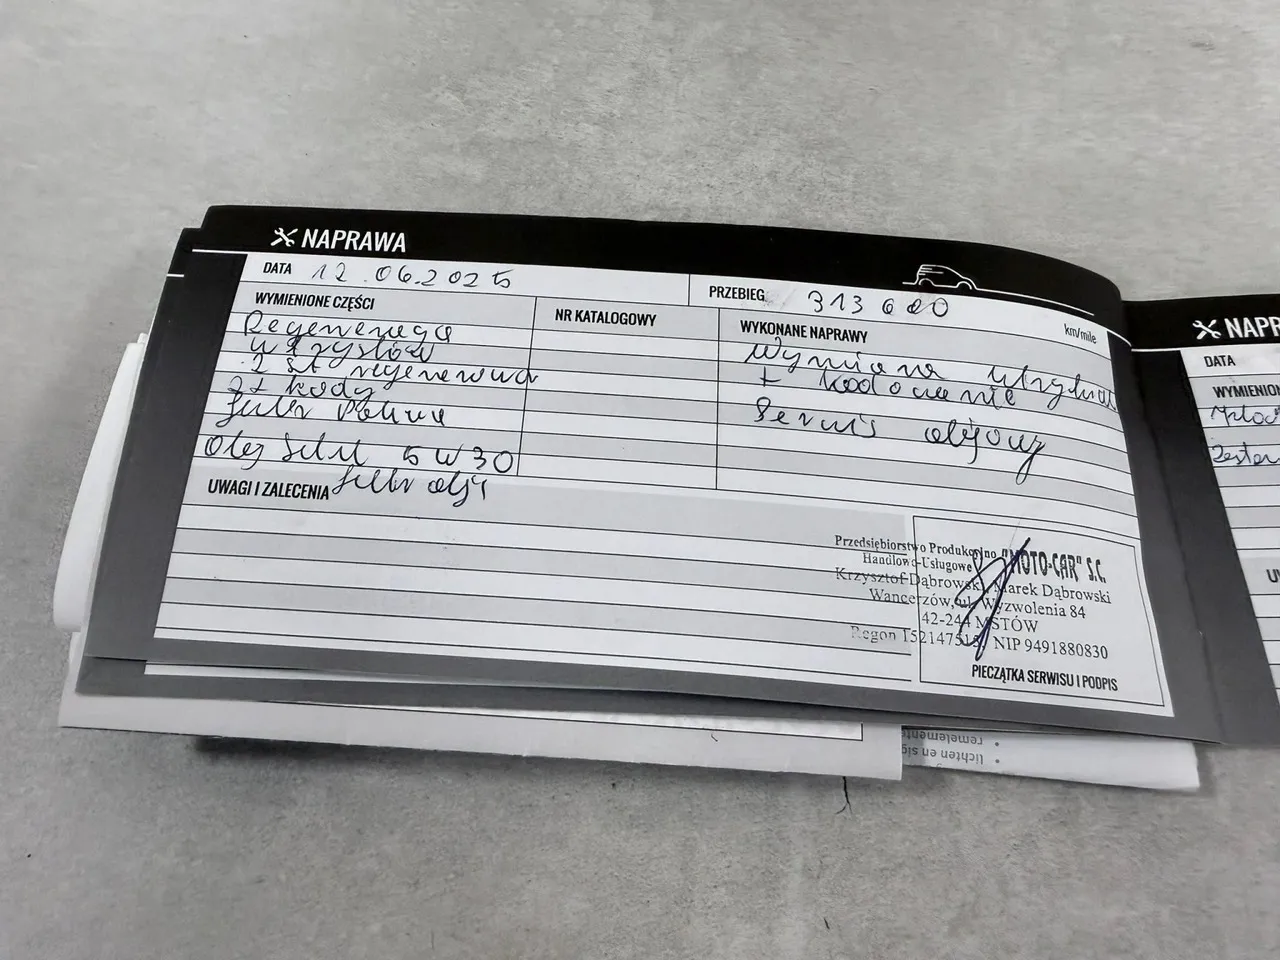 NAPRAWA
DATA 12.06.2025
PRZEBIEG 313 600
km/mile
WYMIENIONE CZĘŚCI
NR KATALOGOWY
WYKONANE NAPRAWY
Regeneracja
wtrysków
2 szt regenerowa
2x kody
filtr paliwa
Olej Shell 5W30
filtr oleju
Wymiana wtrysków
+ kodowanie
Serwis olejowy
UWAGI I ZALECENIA
Przedsiębiorstwo Produkcyjno "MOTO-CAR" S.C.
Handlowo-Usługowe
Krzysztof Dąbrowski, Marek Dąbrowski
Wancerzów, ul. Wyzwolenia 84
42-244 MSTÓW
Regon 152147518 NIP 9491880830
PIECZĄTKA SERWISU I PODPIS
NAPR
DATA
WYMIENION
UW
remelements
lichten en sig